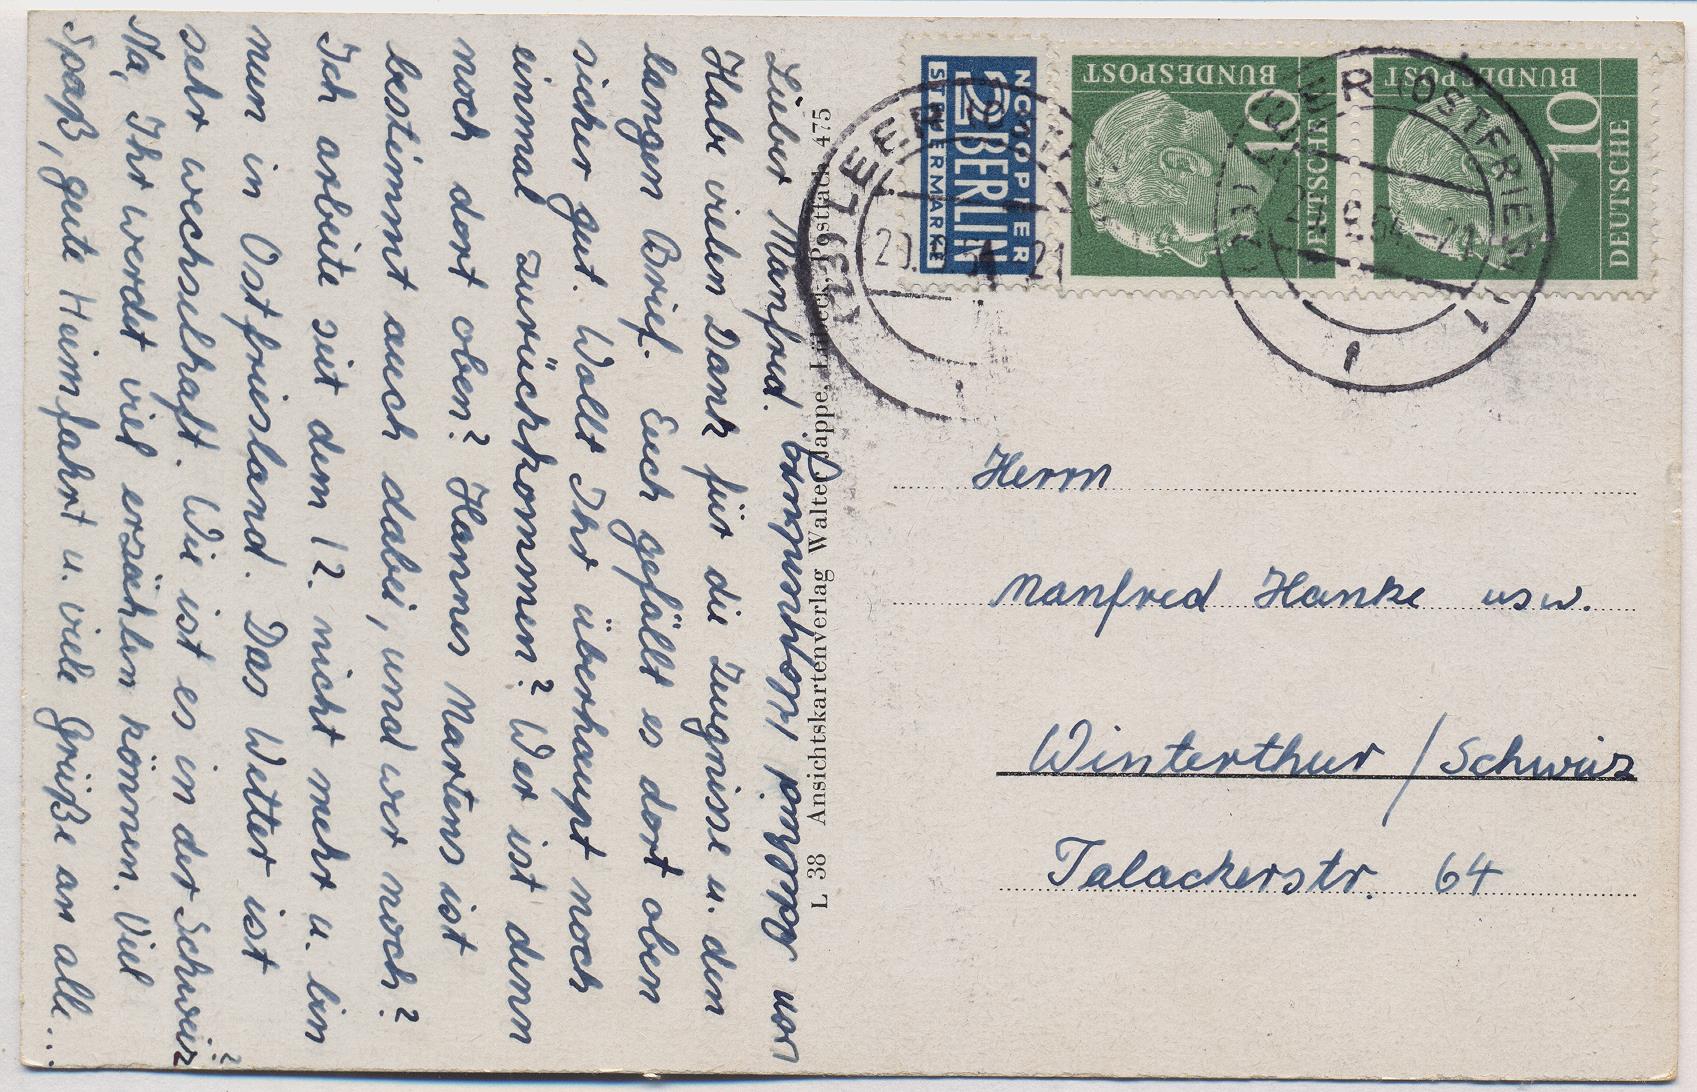 Lieber Manfred.
Habe vielen Dank für die Zeugnisse u. den
langen Brief. Euch gefällt es dort oben
sicher gut. Wollt Ihr überhaupt noch
einmal zurückkommen? Wer ist denn
noch dort oben? Hannes Martens ist
bestimmt auch dabei, und wer noch?
Ich arbeite seit dem 12. nicht mehr u. bin
nun in Ostfriesland. Das Wetter ist
sehr wechselhaft. Wie ist es in der Schweiz?
Na, Ihr werdet viel erzählen können. Viel
Spaß, gute Heimfahrt u. viele Grüße an alle...
von
L 38 Ansichtskartenverlag Walter Jappe, Lübeck, Postfach 475
NOTOPFER
2 BERLIN
STEUERMARKE
DEUTSCHE
BUNDESPOST
10
DEUTSCHE
BUNDESPOST
10
(23) LEER (OSTFRIESL)
(23) LEER (OSTFRIESL) 1
Herrn
Manfred Hanke usw.
Winterthur / Schweiz
Talackerstr. 64